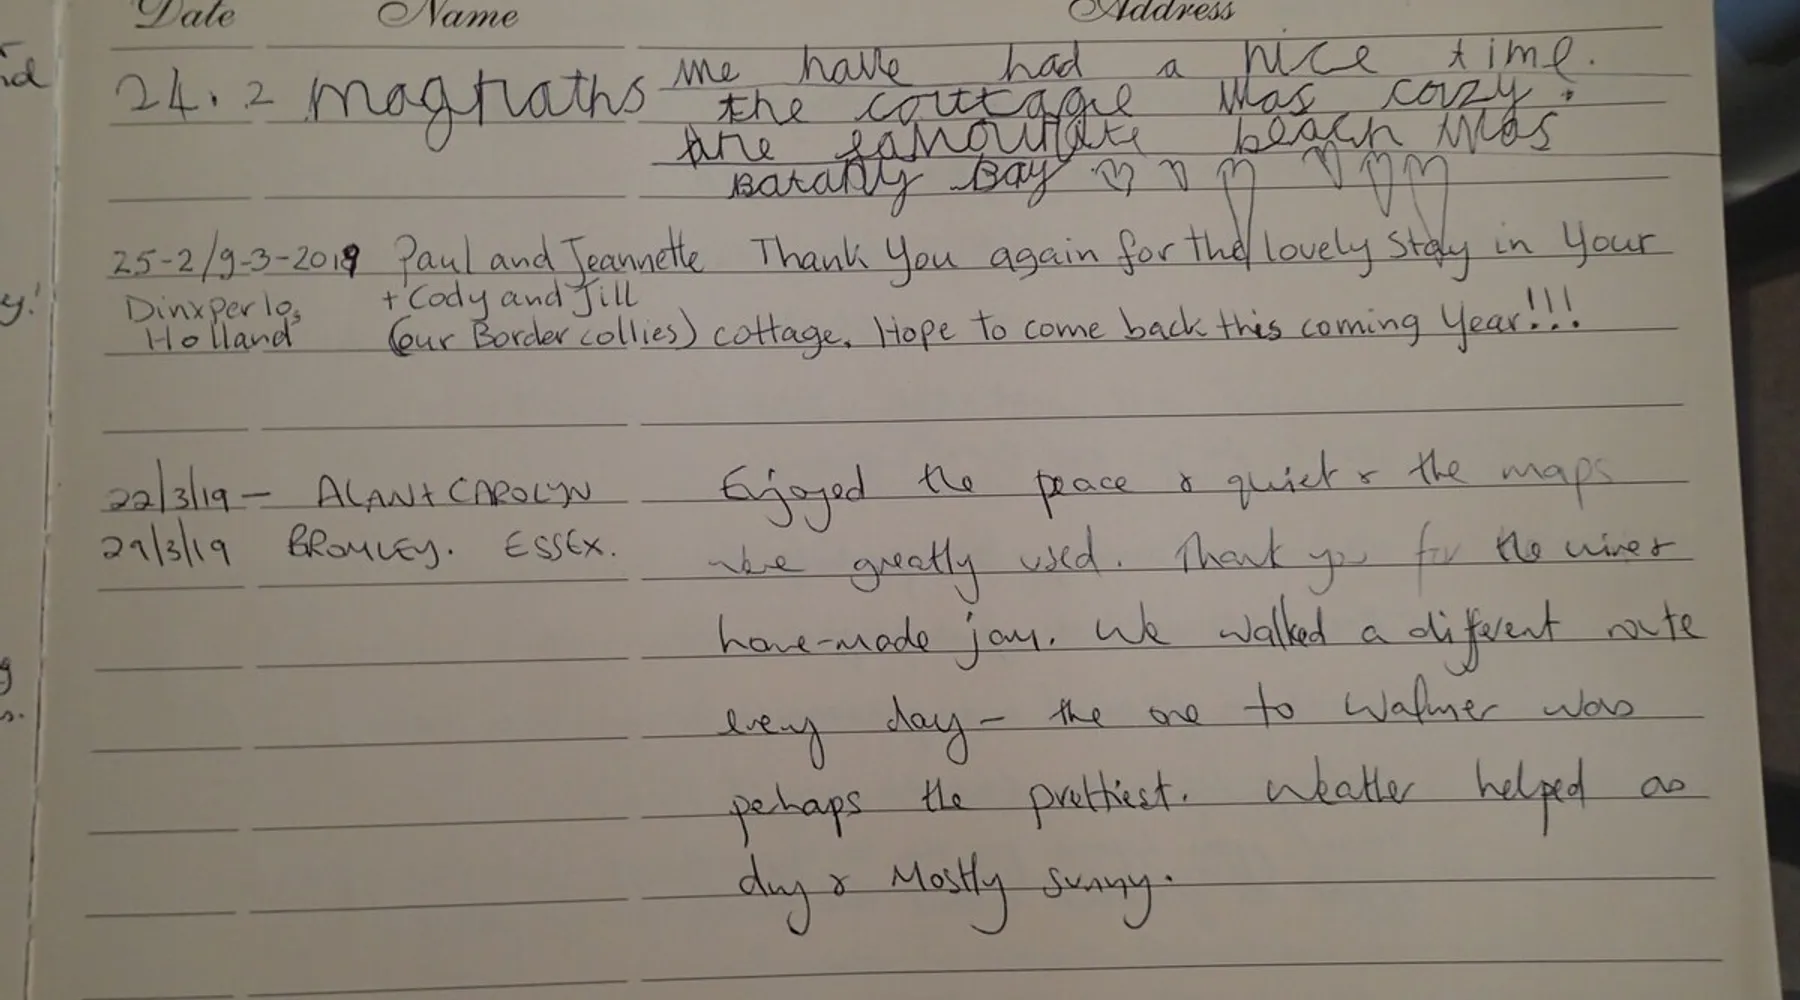 Date Name Address
24.2 magraths we have had a nice time.
the couttage was cozy.
the favourite beach was
Barafly Bay ♡ ♡ ♡ ♡ ♡ ♡
25-2/9-3-2019 Paul and Jeannette Thank You again for the lovely stay in Your
Dinxperlo, + Cody and Jill
Holland (our Border collies) cottage. Hope to come back this coming Year!!!
22/3/19 - ALAN + CAROLYN Enjoyed the peace & quiet & the maps
29/3/19 BROMLEY. ESSEX. were greatly used. Thank you for the wine &
home-made jam. We walked a different route
every day - the one to Walmer was
perhaps the prettiest. Weather helped as
dry & Mostly sunny.